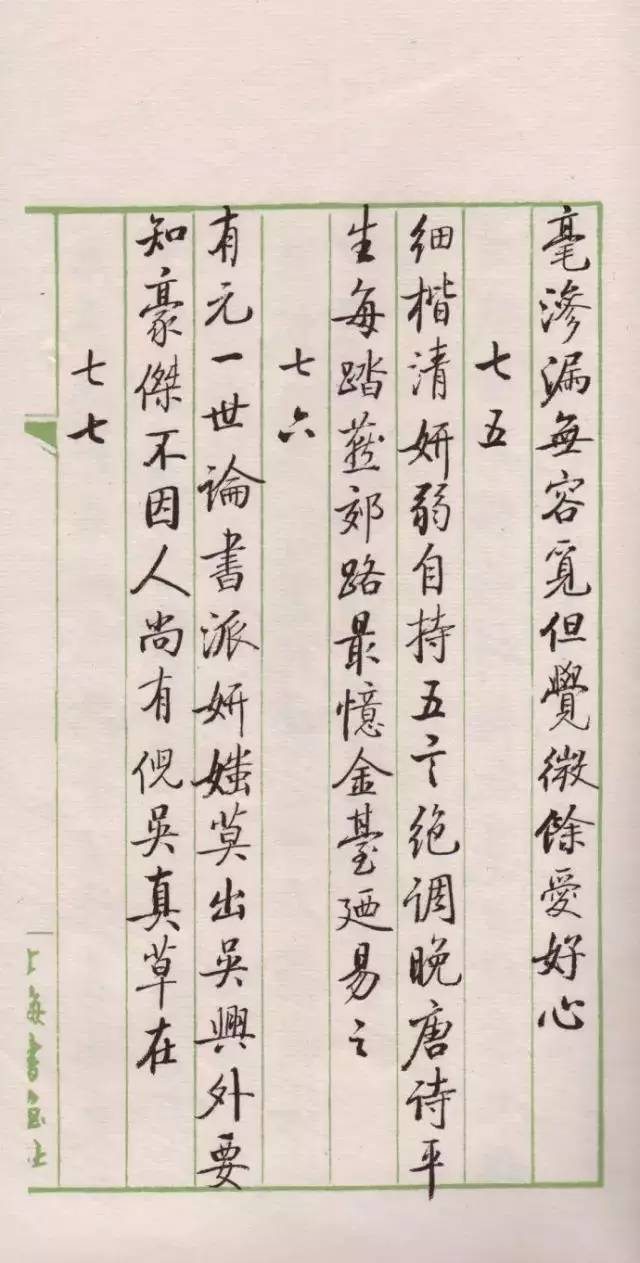 毫滲漏無容覓但覺微餘愛好心
七五
細楷清妍弱自持五言絕調晚唐詩平
生每踏燕郊路最憶金臺廼易之
七六
有元一世論書派妍媸莫出吳興外要
知豪傑不因人尚有倪吳真草在
七七
上海書畫社